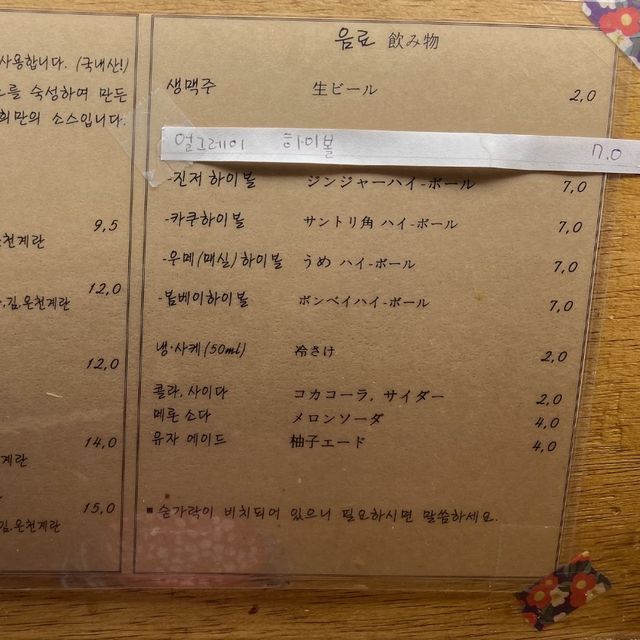 사용합니다. (국내산!)
를 숙성하여 만든
희만의 소스입니다.
9,5
온천계란
12,0
김,온천계란
12,0
14,0
계란
15,0
김,온천계란
음료 飲み物
생맥주 生ビール 2,0
얼그레이 하이볼 7.0
-진저 하이볼 ジンジャーハイ-ボール 7,0
-카쿠하이볼 サントリ角 ハイ-ボール 7,0
-우메(매실)하이볼 うめ ハイ-ボール 7,0
-봄베이하이볼 ボンベイハイ-ボール 7,0
냉·사케(50ml) 冷さけ 2,0
콜라, 사이다 コカコーラ, サイダー 2,0
메론 소다 メロンソーダ 4,0
유자 에이드 柚子エード 4,0
▪ 숟가락이 비치되어 있으니 필요하시면 말씀하세요.